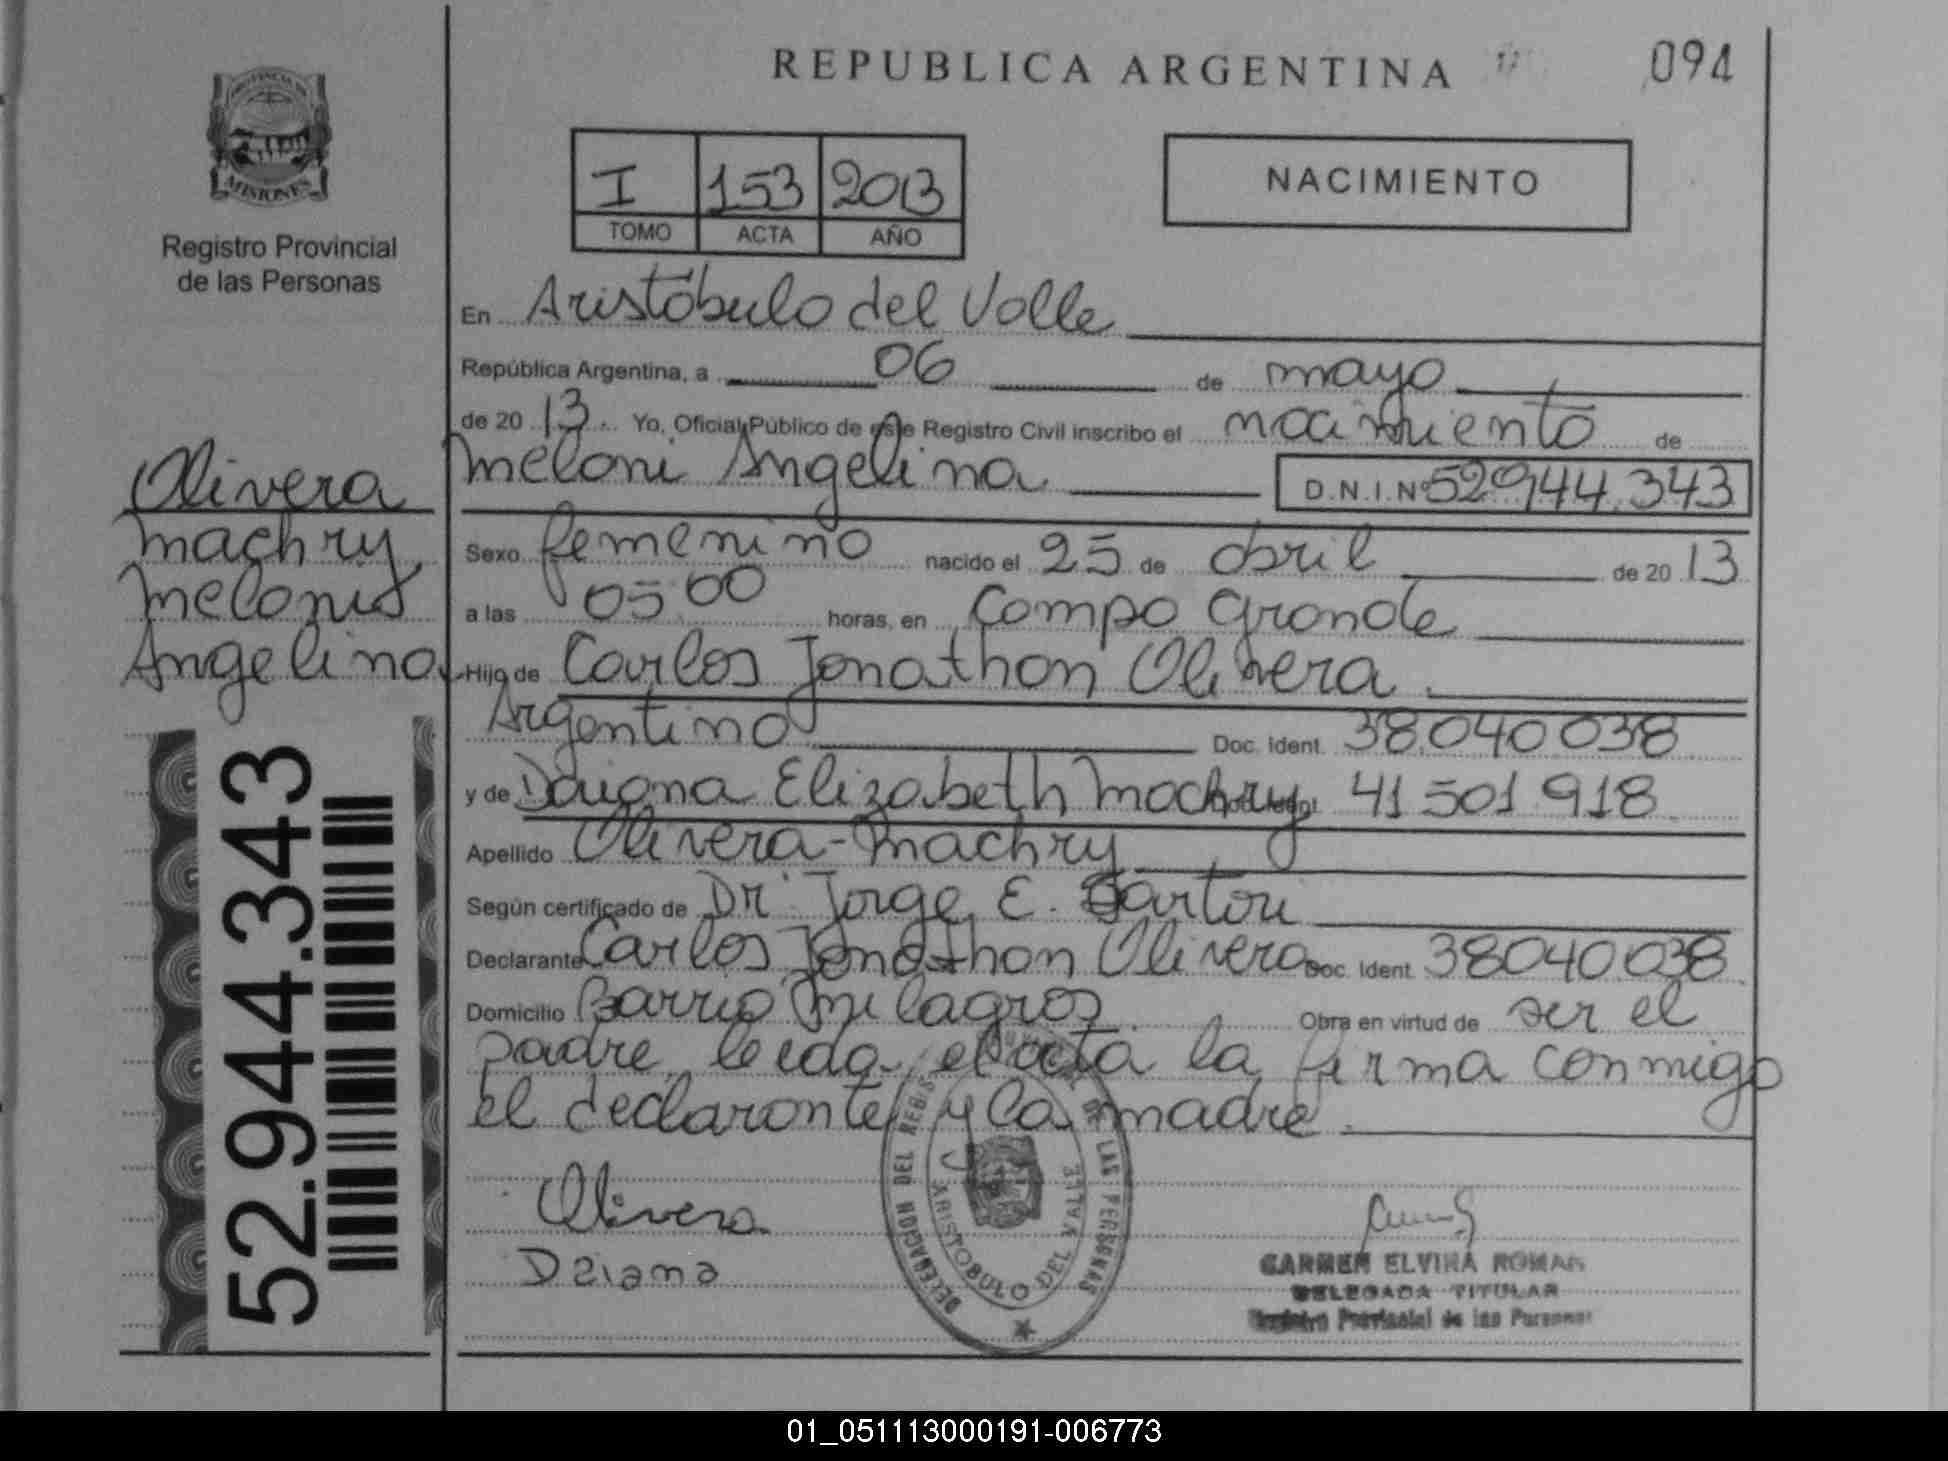 REPUBLICA ARGENTINA
094
PROVINCIA DE
MISIONES
Registro Provincial
de las Personas
I 153 2013
TOMO ACTA AÑO
NACIMIENTO
En Aristóbulo del Valle
República Argentina, a 06 de mayo
de 20 13 Yo, Oficial Público de este Registro Civil inscribo el nacimiento de
Meloni Angelina D.N.I.Nº 52.944.343
Olivera
Machry
Meloni
Angelina
Sexo femenino nacido el 25 de abril de 20 13
a las 05:00 horas, en Campo Grande
Hijo de Carlos Jonathan Olivera
Argentino Doc. Ident. 38.040.038
y de Daiana Elizabeth Machry Doc. Ident. 41 501 918
Apellido Olivera-Machry
Según certificado de Dr. Jorge E. Sartori
Declarante Carlos Jonathan Olivera Doc. Ident. 38040038
Domicilio Barrio Milagros Obra en virtud de ser el
padre, leida el acta la firma conmigo
el declarante y la madre.
52.944.343
Olivera
Daiana
DELEGACION DEL REGIS PROVINCIAL DE LAS PERSONAS
ARISTOBULO DEL VALLE
CARMEN ELVIRA ROMAN
DELEGADA TITULAR
Registro Provincial de las Personas
01_051113000191-006773